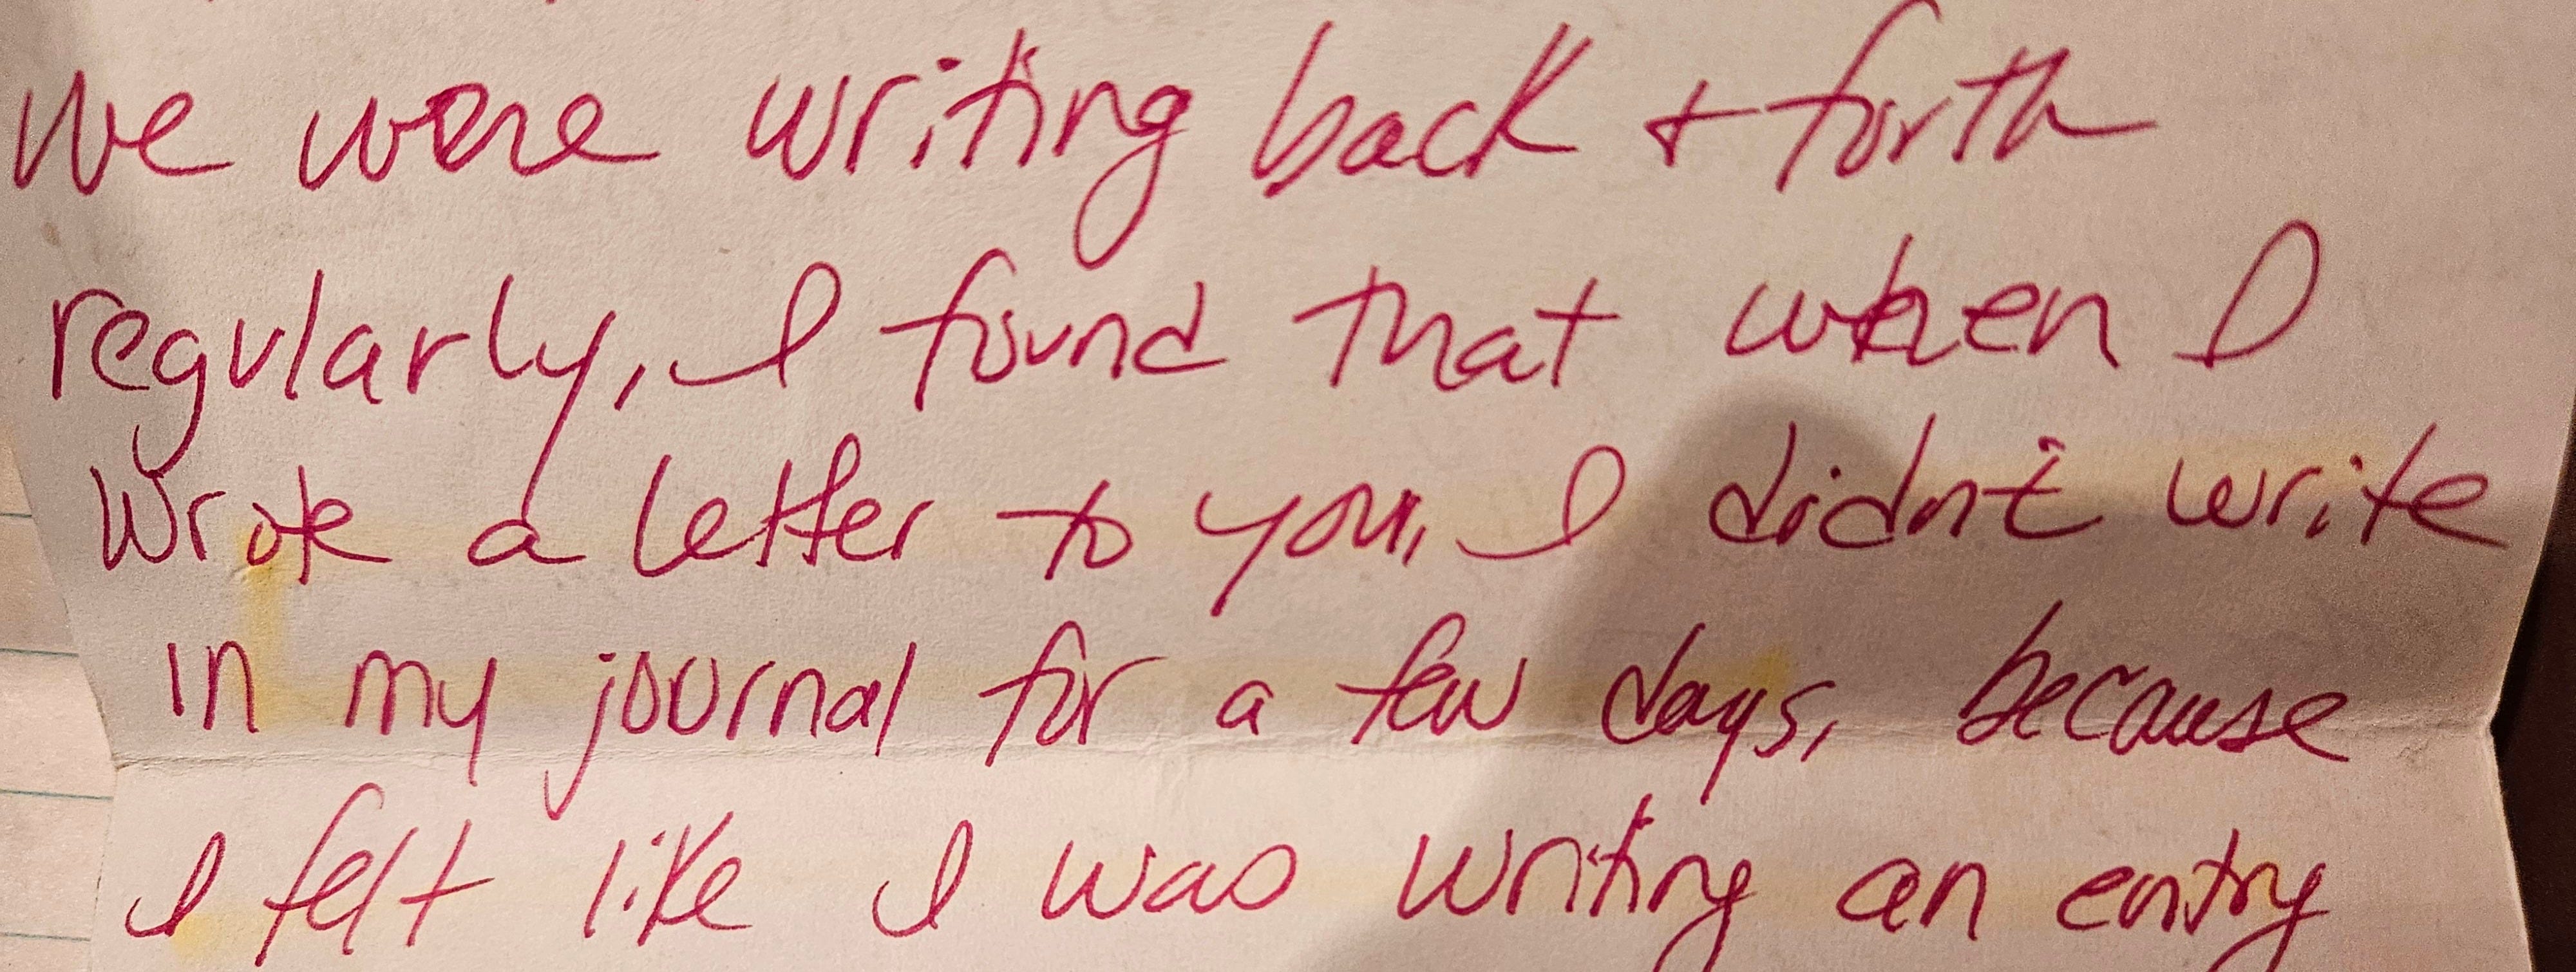 We were writing back + forth
regularly, I found that when I
wrote a letter to you, I didn't write
in my journal for a few days, because
I felt like I was writing an entry